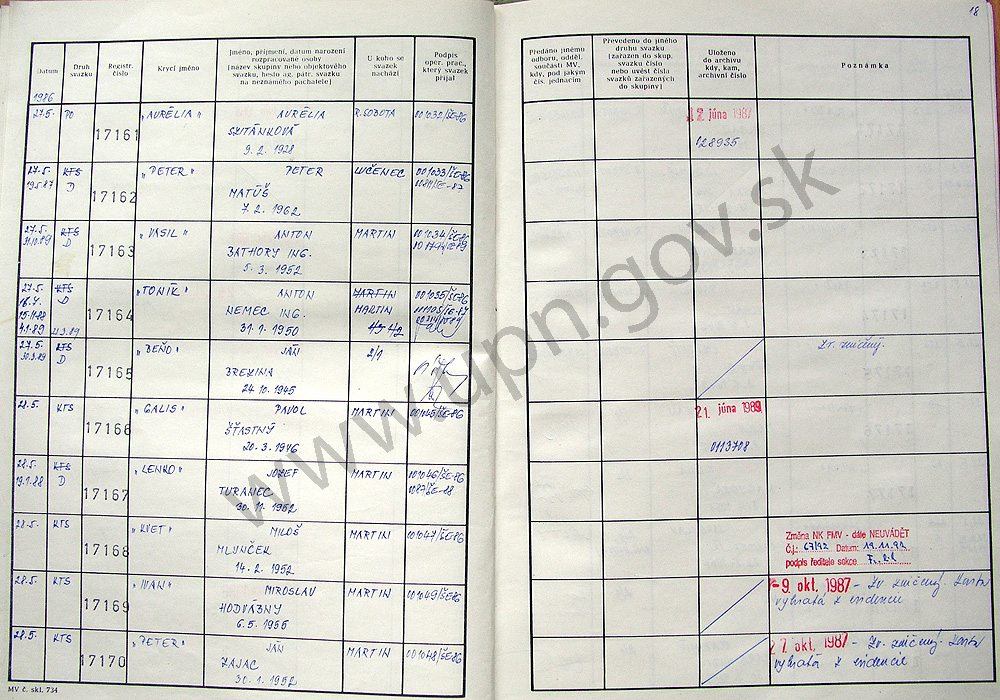 18
Datum
Druh svazku
Registr. číslo
Krycí jméno
Jméno, příjmení, datum narození
rozpracované osoby
(název skupiny nebo objektového
svazku, heslo ag. pátr. svazku
na neznámého pachatele)
U koho se
svazek
nachází
Podpis
oper. prac.,
který svazek
přijal
Předáno jinému
odboru, odděl.
součásti MV,
kdy, pod jakým
čís. jednacím
Převedeno do jiného
druhu svazku
(zařazen do skup.
svazku číslo
nebo uvést čísla
svazků zařazených
do skupiny)
Uloženo
do archivu
kdy, kam,
archivní číslo
Poznámka
1986
27.5. PO 17161 „AURÉLIA" AURÉLIA R. SOBOTA 001032/ŠE-86 12 júna 1987
SKITÁNKOVÁ 128935
9. 2. 1928
27.5. KTS 17162 „PETER" PETER LUČENEC 001033/ŠE-86
19.5.87 D MATÚŠ
7. 2. 1962
27.5. KTS 17163 „VASIL" ANTON MARTIN 001034/ŠE-86
31.10.89 D BATHORY ING.
5. 3. 1952
27.5. KTS 17164 „TONÍK" ANTON MARTIN 001035/ŠE-86
D NEMEC ING. MARTIN
15.11.88
4.1.89 21.3.89 31. 1. 1950
27.5. KTS 17165 „BEŇO" JÁN 2/1 Zv. zničený.
30.3.89 D BREZINA
24. 10. 1945
28.5. KTS 17166 „GALIS" PAVOL MARTIN 001045/ŠE-86 21. júna 1989
ŠŤASTNÝ 0113708
20. 3. 1946
28.5. KTS 17167 „LENKO" JOZEF MARTIN 001046/ŠE-86
19.1.88 D TURANEC 0087/ŠE-88
30. 11. 1952
28.5. KTS 17168 „KVET" MILOŠ MARTIN 001047/ŠE-86
MLUNČEK
14. 2. 1952
Změna NK FMV - dále NEUVÁDĚT
Č.j.: 67/92 Datum: 19.11.92
podpis ředitele sekce
28.5. KTS 17169 „IVAN" MIROSLAV MARTIN 001049/ŠE-86 -9. okt. 1987 - Zv. zničený. Karta
HODVÁBNY vyňatá z evidencie
6. 5. 1955
28.5. KTS 17170 „PETER" JÁN MARTIN 001048/ŠE-86 27. okt. 1987 - Zv. zničený. Karta
ZAJAC vyňatá z evidencie
30. 1. 1952
MV č. skl. 734
www.upn.gov.sk